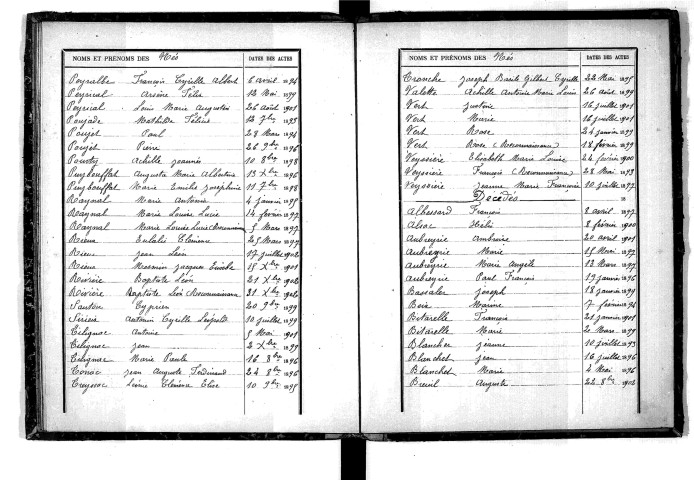 NOMS ET PRENOMS DES Nés DATES DES ACTES
Peyralbe François Cyrille Albert 6 avril 1894
Peyrical Arsène Félix 12 Mai 1899
Peyrical Louis Marie Augustin 26 Août 1901
Poujade Mathilde 12 7bre 1893
Poujet Paul 28 Mars 1894
Poujet Pierre 26 9bre 1896
Pourty Achille 10 8bre 1898
Puybouffat Auguste Marie 13 Xbre 1896
Puybouffat Marie Emilie Joséphine 11 7bre 1898
Raynal Marie Antonia 4 janvier 1895
Raynal Marie Louise Lucie 14 février 1897
Raynal Marie Louise Lucie Mars 1897
Rieux Eulalie Clémence 25 Mars 1897
Rieux Jean Léon 17 juillet 1902
Rieux Jacques 15 Xbre 1901
Rivière Baptiste Léon 21 Xbre 1902
Rivière Baptiste Léon Reconnaissance 31 Xbre 1902
Cyprien 20 9bre 1899
Antonin Cyrille Léopold 10 juillet 1899
Célignac Antoine 5 Mai 1901
Célignac Jean 2 Xbre 1899
Célignac Marie Paule 16 8bre 1896
Jean Auguste Ferdinand 24 8bre 1896
Clémence Elise 10 9bre 1895
NOMS ET PRÉNOMS DES Nés DATES DES ACTES
Tronche Joseph Basile Gilbert Cyrille 22 Mai 1895
Valette Achille Antoine Marie Louis 26 août 1899
Vert Justine 16 juillet 1901
Vert Marie 16 juillet 1901
Vert Rose 24 janvier 1899
Vert Rose (Reconnaissance) 18 février 1899
Veyssière Elisabeth Marie Louise 22 février 1900
Veyssière François (Reconnaissance) 28 Mai 1893
Veyssière Jeanne Marie Françoise 10 juillet 1897
Décédés
Albessard François 8 avril 1897
Alsac Hélène 8 février 1900
Aubreyrie Ambroise 20 avril 1901
Aubreyrie Marie 15 Mai 1897
Aubreyrie Marie Angèle 13 Mars 1897
Aubreyrie Paul François 19 janvier 1896
Bassaler Joseph 18 janvier 1899
Marine 7 février 1894
Bitarelle François 21 janvier 1901
Bitarelle Marie 20 Mars 1899
Blancher Jeanne 10 juillet 1893
Blanchet Jean 16 juillet 1896
Blanchet Marie 4 Mai 1896
Breuil Auguste 22 8bre 1902